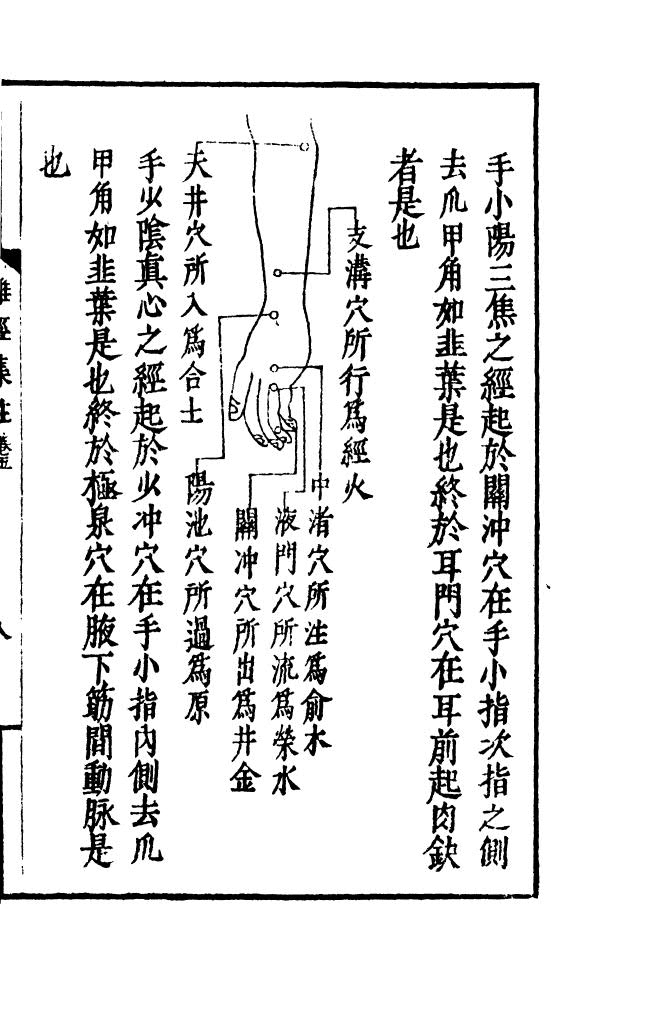 手小陽三焦之經起於關沖穴在手小指次指之側
去爪甲角如韭葉是也終於耳門穴在耳前起肉鈌
者是也
支溝穴所行爲經火
中渚穴所注爲俞水
液門穴所流爲滎水
關沖穴所出爲井金
陽池穴所過爲原
天井穴所入爲合土
手少陰真心之經起於少沖穴在手小指內側去爪
甲角如韭葉是也終於極泉穴在腋下筋間動脉是
也
難經集註
卷五
八